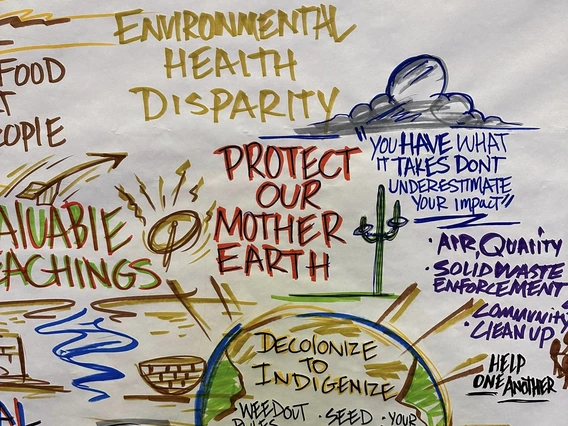 ENVIRONMENTAL
HEALTH
DISPARITY
FOOD
PROTECT
OUR
MOTHER
EARTH
"YOU HAVE WHAT
IT TAKES DONT
UNDERESTIMATE
YOUR impact"
· AIR, QuALiTY
· SOLID WASTE
ENFORCEMENT
· COMMUNITY
CLEAN UP
HELP
ONE ANOTHER
DECOLONIZE
TO
INDIGENIZE
WEEDOUT · SEED · YOUR